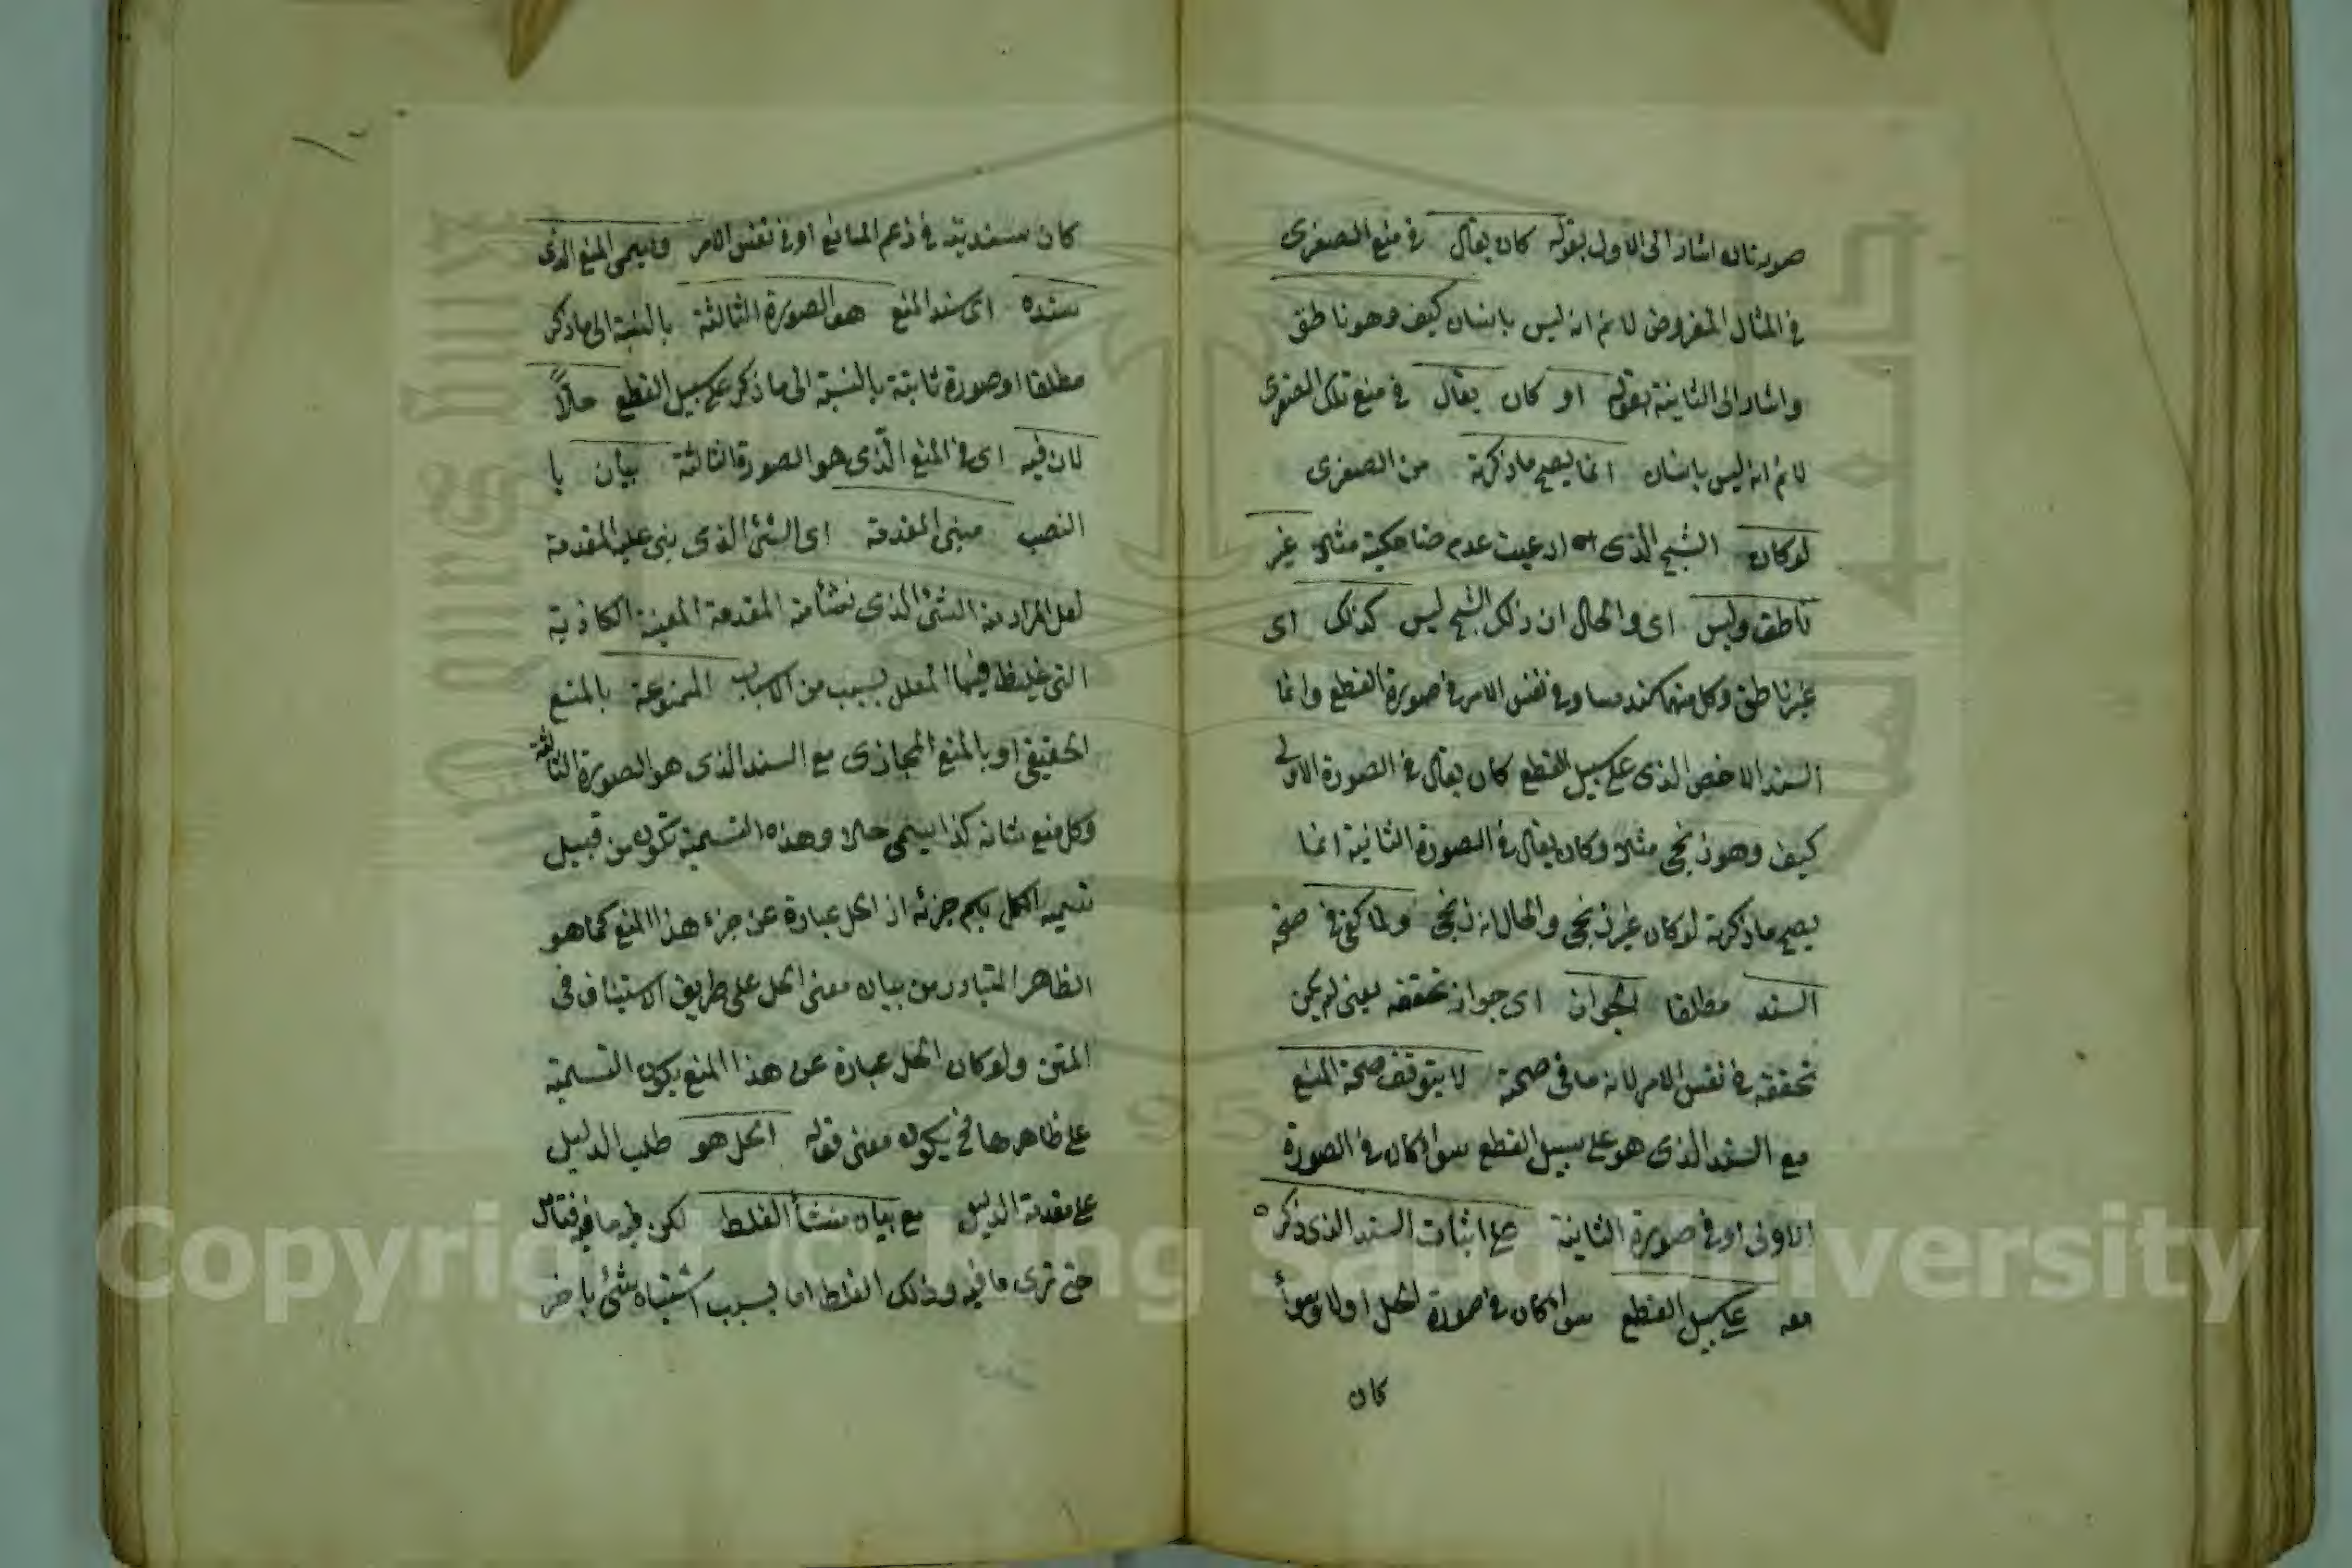 صورتان اشار الى الاول بقوله كان يقال فى منع الصغرى
فى المثال المفروض لا نم انه ليس بانسان كيف وهو ناطق
واشار الى الثانية بقوله او كان يقال فى منع تلك الصغرى
لا نم انه ليس بانسان انما يصح ما ذكرته من الصغرى
لو كان الشبح الذى ادعيت عدم ضاحكيته مثلا غير
ناطق وليس اى والحال ان ذلك الشبح ليس كذلك اى
غير ناطق وكل منهما كسند مساو فى نفس الامر فى صورة القطع وانما
السند الاخص الذى على سبيل القطع كان يقال فى الصورة الاولى
كيف وهو زنجى مثلا وكان يقال فى الصورة الثانية انما
يصح ما ذكرته لو كان غير زنجى والحال انه زنجى ولما كفى فى صحة
السند مطلقا الجواز اى جواز تحققه يعنى لم يكن
تحققه فى نفس الامر لانه ما فى صحة لا يتوقف صحة المنع
مع السند الذى هو على سبيل القطع سواء كان فى الصورة
الاولى او فى صورة الثانية على اثبات السند الذى ذكره
معه على سبيل القطع سواء كان فى صورة الحل اولا وسواء
كان
كان سنديته فى زعم المانع او فى نفس الامر ويسمى المنع الذى
سنده اى سند المنع هو الصورة الثالثة بالنسبة الى ما ذكر
مطلقا او صورة ثانية بالنسبة الى ما ذكر على سبيل القطع حلاً
لان فيه اى فى المنع الذى هو الصورة الثالثة بيان با
النصب مبنى المقدمة اى الشئ الذى بنى عليه المقدمة
لعل المراد منه الشئ الذى نشأ منه المقدمة المعينة الكاذبة
التى غلط فيها المعلل بسبب من الاسباب الممنوعة بالمنع
الحقيقى او بالمنع المجازى مع السند الذى هو الصورة الثالثة
وكل منع شانه كذا يسمى حلا وهذه التسمية تكون من قبيل
تسمية الكل باسم جزئه اذ الحل عبارة عن جزء هذا المنع كما هو
الظاهر المتبادر من بيان معنى الحل على طريق الاستيناف فى
المتن ولو كان الحل عبارة عن هذا المنع يكون التسمية
على ظاهرها فح يكون معنى قوله الحل هو طلب الدليل
على مقدمة الدليل مع بيان منشأ الغلط لكن فيه ما فيه فتأمل
حتى ترى ما فيه وذلك الغلط اما بسبب اشتباه شئ باخر
Copyright © King Saud University
1957